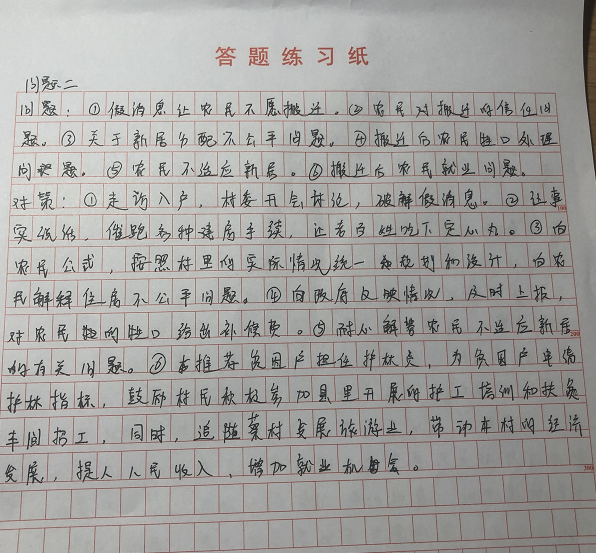 答题练习纸
问题二
问题：①假消息让农民不愿搬迁。②农民对搬迁的信任问
题。③关于新居分配不公平问题。④搬迁后农民牲口处理
问题。⑤农民不适应新居。⑥搬迁后农民就业问题。
对策：①走访入户，村委开会讨论，破解假消息。②往事
实流传，催跑各种建房手续，让老百姓吃下定心丸。③向
农民公式，按照村里的实际情况统一规划和设计，向农
民解释住房不公平问题。④向政府反映情况，及时上报，
对农民牲口给出补偿费。⑤耐心解答农民不适应新居
的有关问题。⑥推荐贫困户担任护林员，为贫困户申请
护林指标，鼓励村民积极参加县里开展的护工培训和扶贫
车间招工，同时，追随蔡村发展旅游业，带动本村的经济
发展，提人人民收入，增加就业机会。
100
200
300